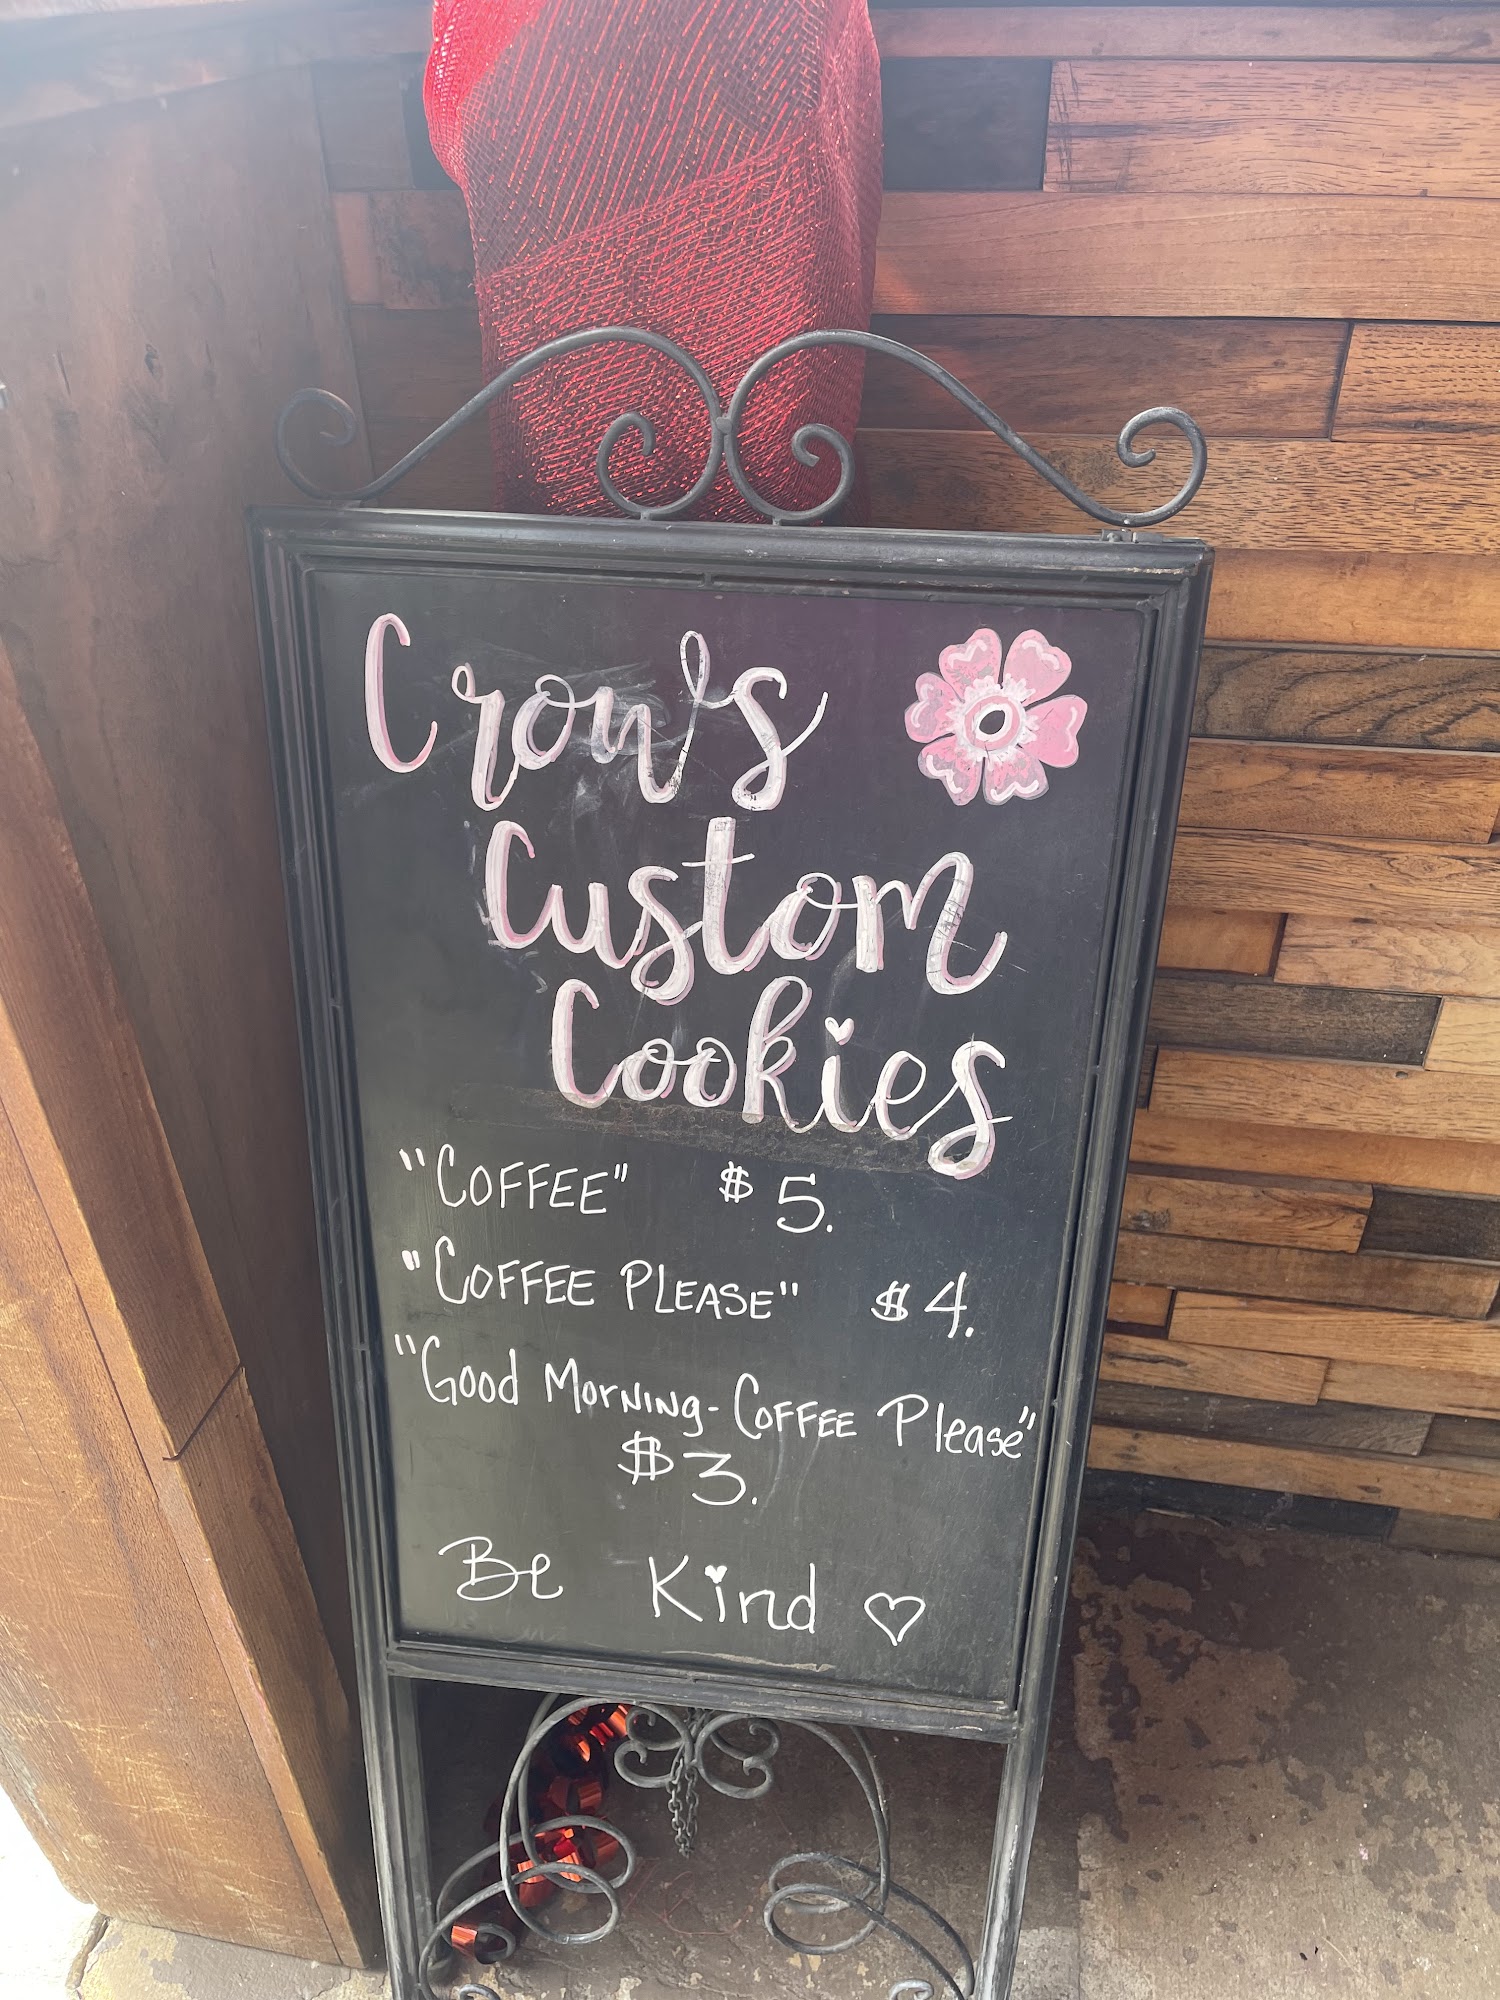 Crow's
Custom
Cookies
"COFFEE" $5.
"COFFEE PLEASE" $4.
"Good Morning - COFFEE Please"
$3.
Be Kind ♡